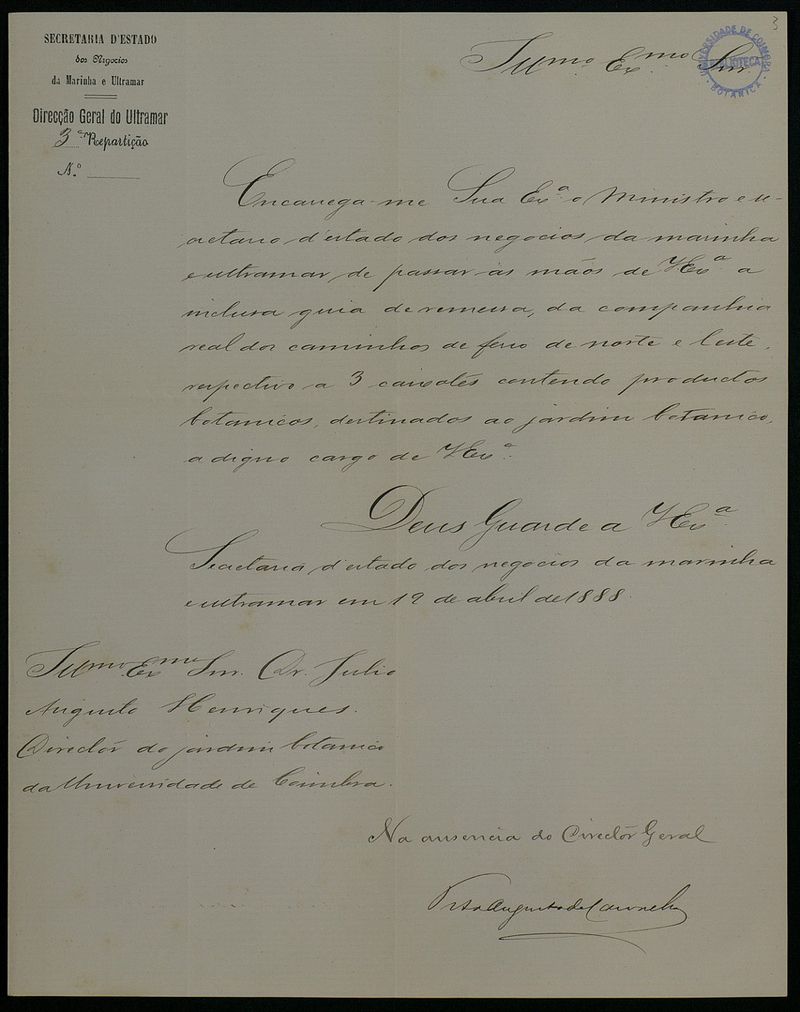 3
SECRETARIA D'ESTADO
dos Negocios
da Marinha e Ultramar
Direcção Geral do Ultramar
3.ª Repartição
N.º
Illmo. Exmo. Snr.
UNIVERSIDADE DE COIMBRA
BIBLIOTECA
BOTANICA
Encarrega-me Sua Exª o Ministro e se-
cretario d'estado dos negocios da marinha
e ultramar de passar ás mãos de V Exª a
inclusa guia de remessa, da companhia
real dos caminhos de ferro de norte e leste,
respectiva a 3 caixotes contendo productos
botanicos, destinados ao jardim botanico,
a digno cargo de V Exª.
Deus Guarde a V Exª.
Secretaria d'estado dos negocios da marinha
e ultramar em 19 de abril de 1888.
Illmo. Exmo. Snr. Dr. Julio
Augusto Henriques.
Directôr do jardim botanico
da Universidade de Coimbra.
Na ausencia do Directôr Geral
Augusto de Carvalho